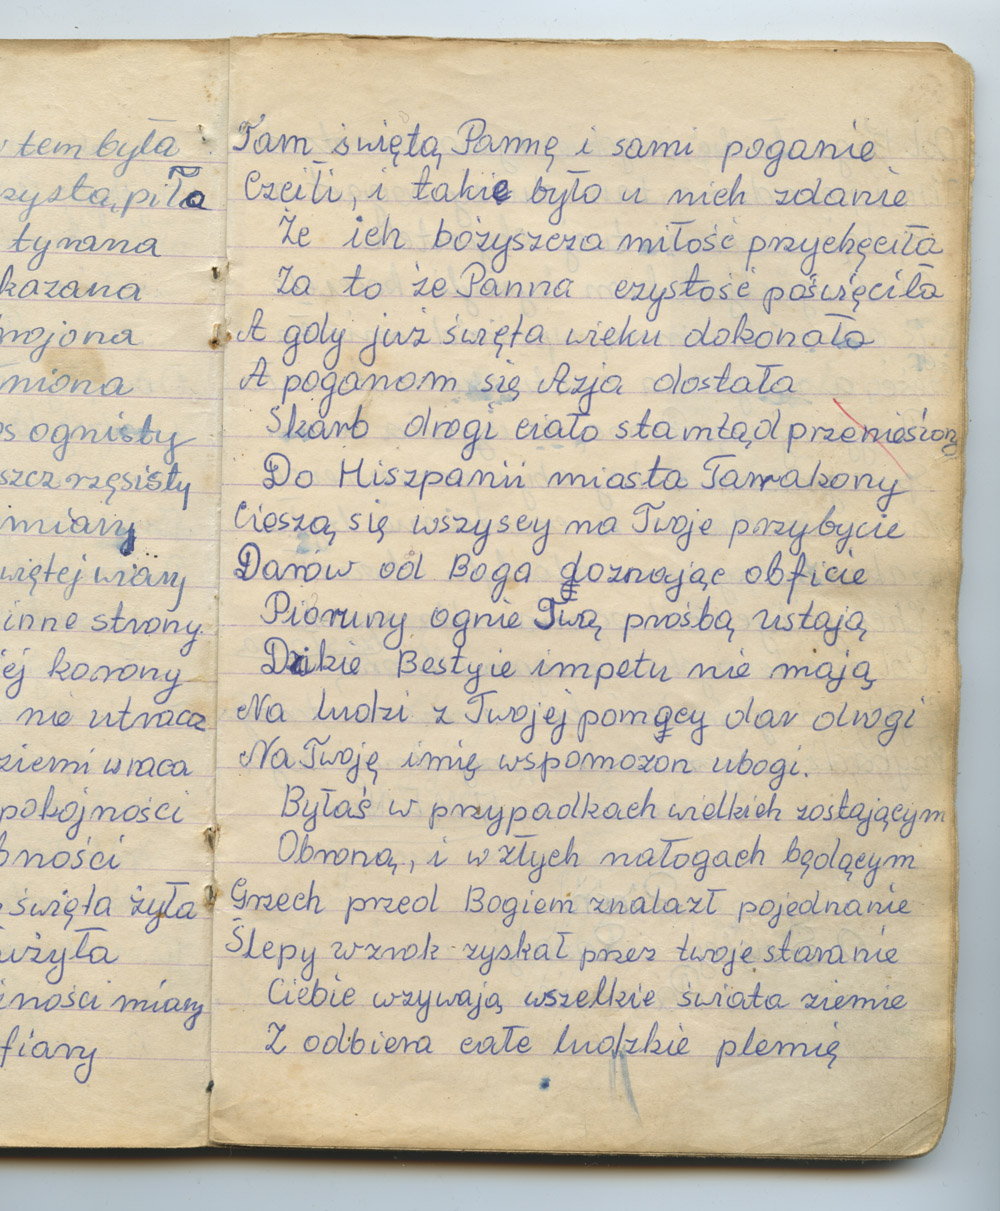 tem była
czysta, piła
tyrana
kazana
ojona
miona
ognisty
szcz rzęsisty
miary
więtej wiary
inne strony
ej korony
nie utraca
ziemi wraca
pokojności
bności
święta żyła
użyła
ności miary
fiary
Tam świętą Pannę i sami poganie
Czcili, i takie było u nich zdanie
Że ich bożyszcza miłość przychęciła
Za to że Panna czystość poświęciła
A gdy już święta wieku dokonała
A poganom się Azja dostała
Skarb drogi ciało stamtąd przeniesiony
Do Hiszpanii miasta Tarrakony
Cieszą się wszyscy na Twoje przybycie
Darow od Boga doznając obficie
Pioruny ognie Twą prośbą ustają
Dzikie Bestyie impetu nie mają
Na ludzi z Twojej pomocy dar drogi
Na Twoję imię wspomożon ubogi.
Byłaś w przypadkach wielkich zostającym
Obroną, i w złych nałogach będącym
Grzech przed Bogiem znalazł pojednanie
Ślepy wzrok zyskał przez twoje staranie
Ciebie wzywają wszelkie świata ziemie
Z odbiera całe ludzkie plemię